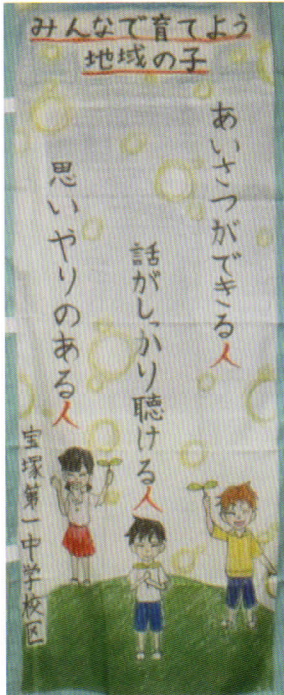 みんなで育てよう
地域の子
あいさつができる人
話がしっかり聴ける人
思いやりのある人
宝塚第一中学校区